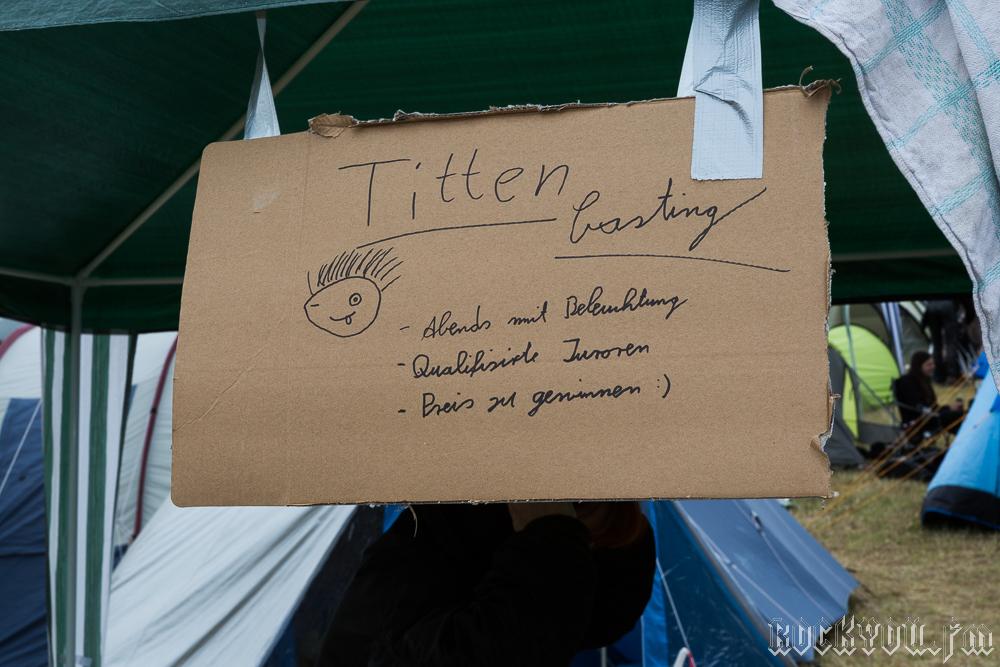 Titten
Casting
- Abends mit Beleuchtung
- Qualifizirte Juroren
- Preis zu gewinnen :)
ROCKYOU.fm